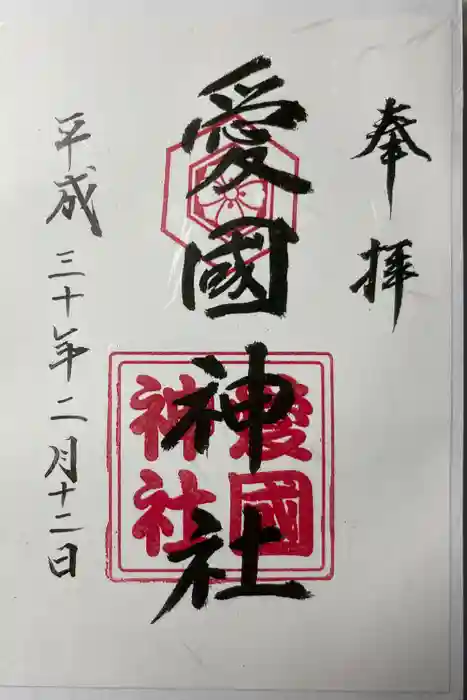 奉拝
愛國神社
愛國
神社
平成三十年二月十二日